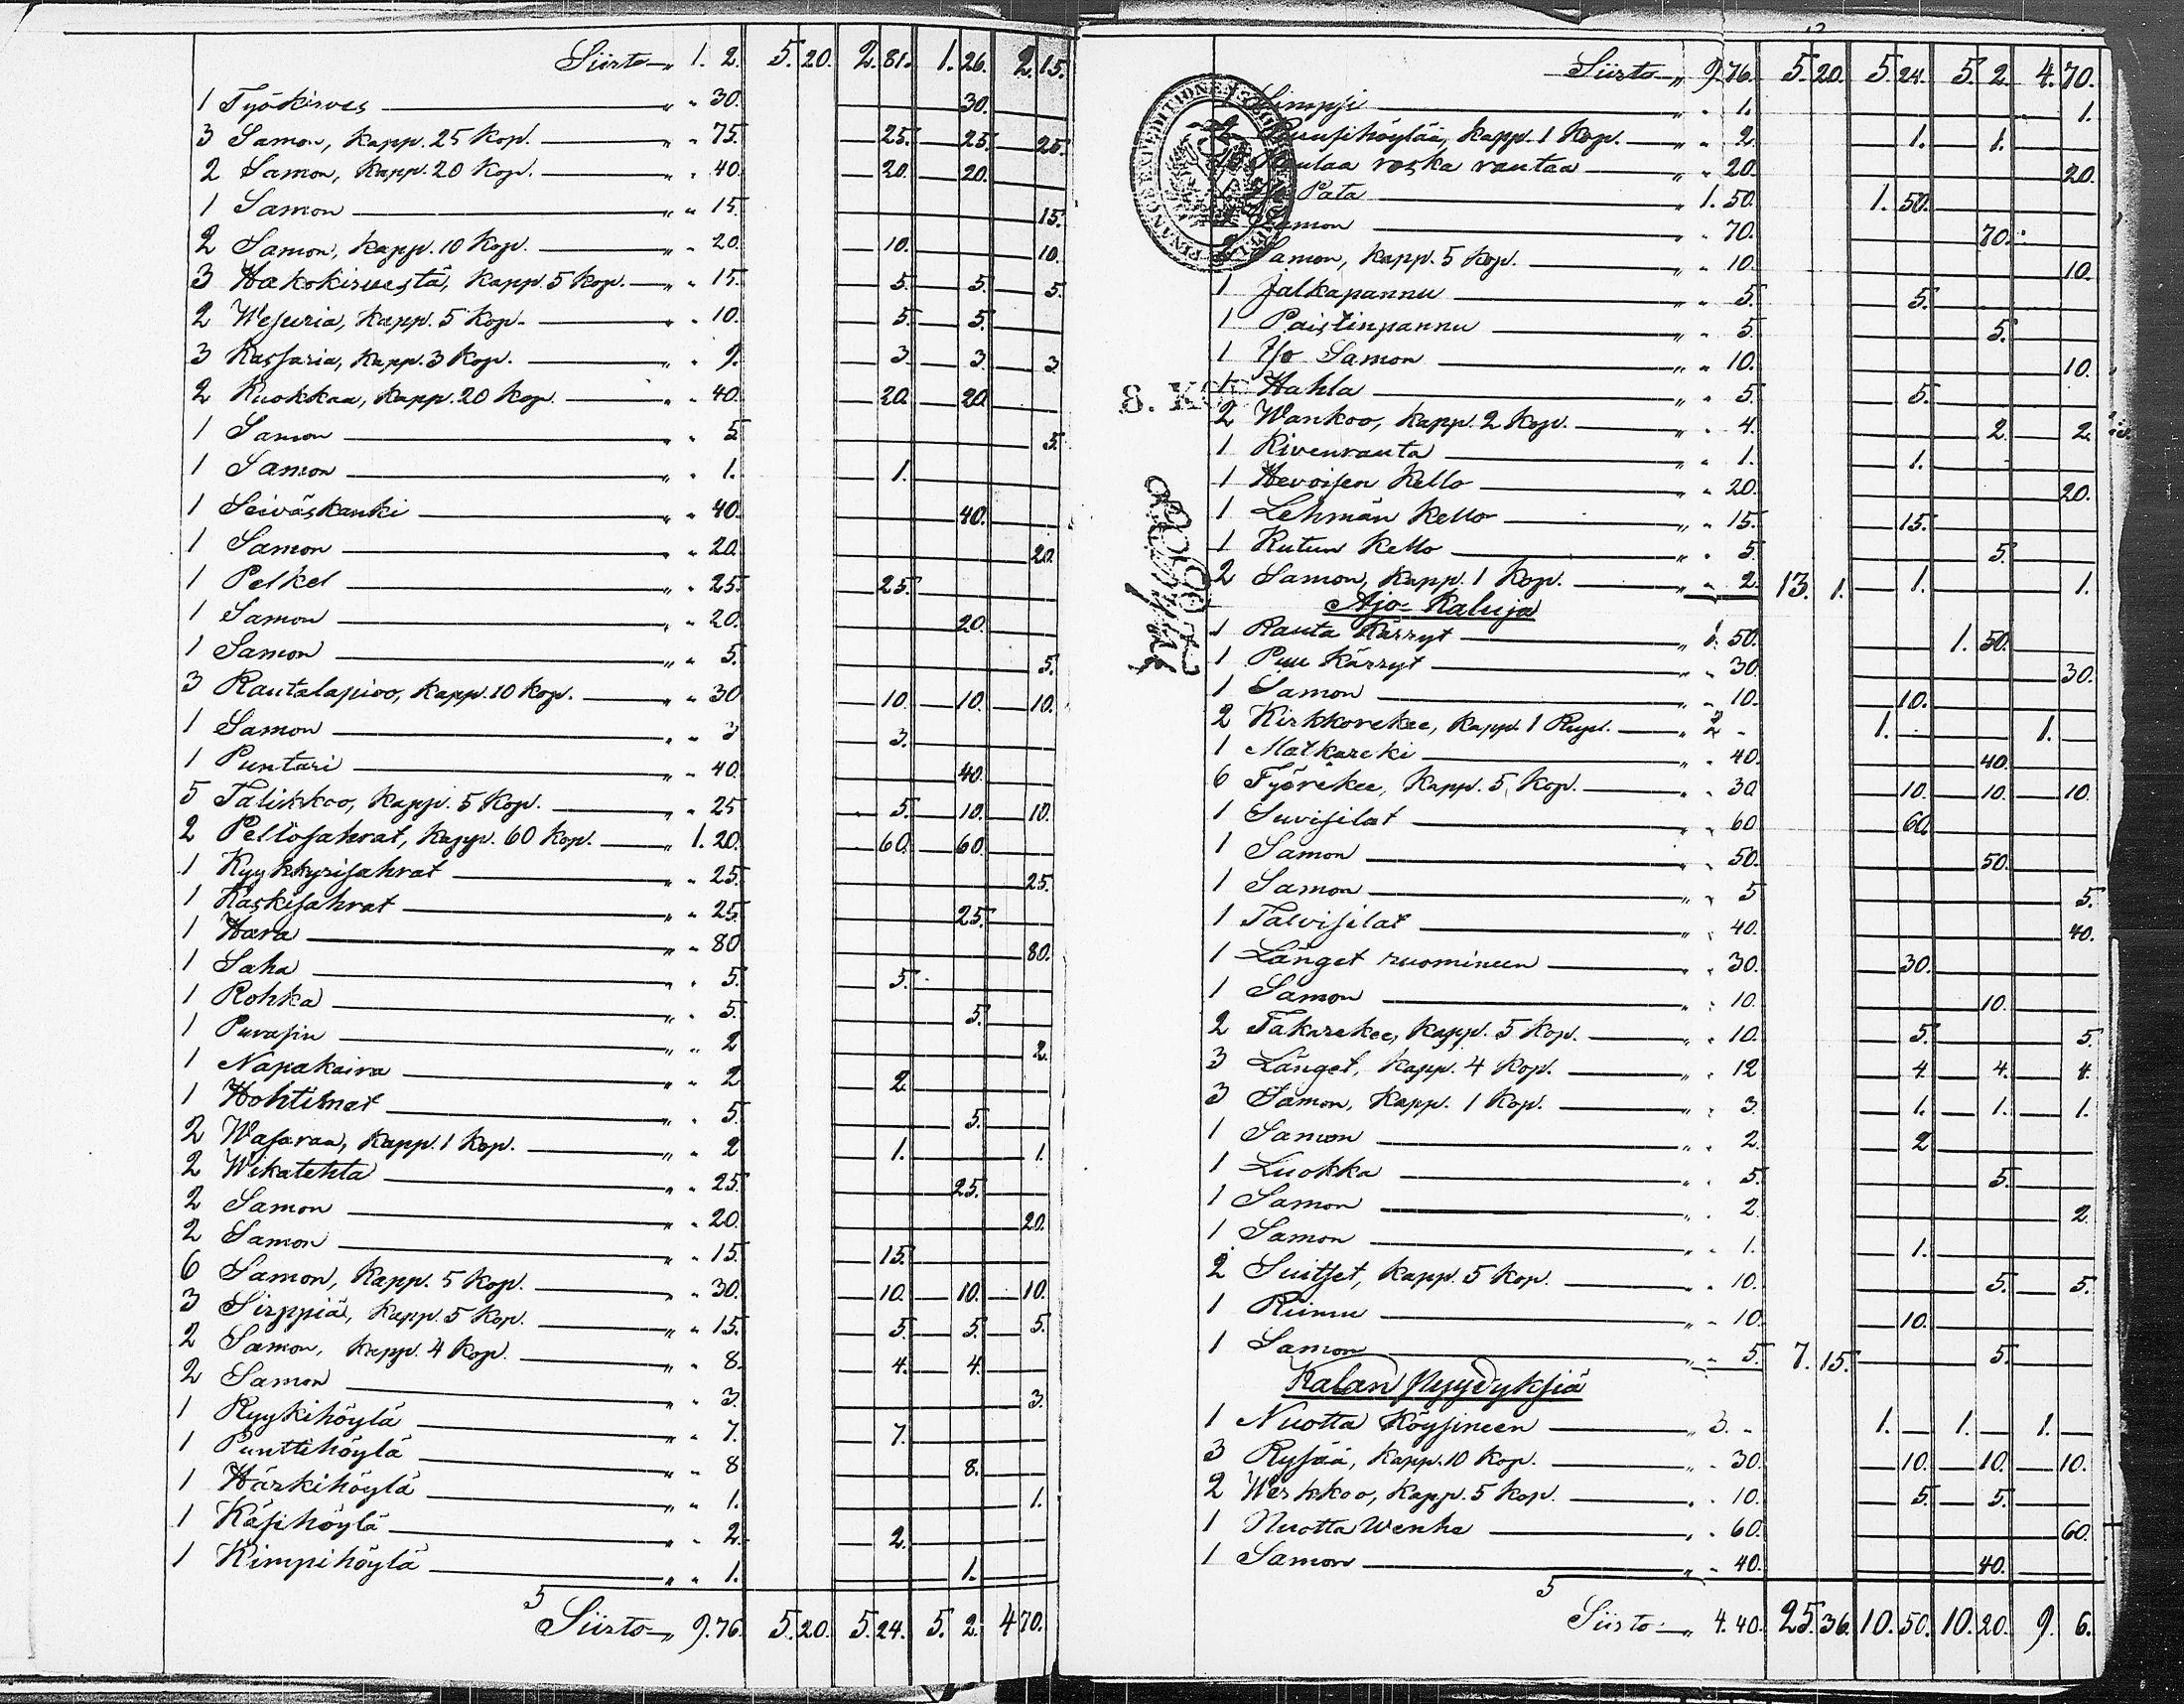 Siirto „ 1. 2. 5. 20. 2. 81. 1. 26. 2. 15.
1 Työkirves „ „ 30. 30.
3 Samon, Kapp. 25 Kop. „ „ 75. 25. 25. 25.
2 Samon, Kapp. 20 Kop. „ „ 40. 20. 20.
1 Samon „ „ 15. 15.
2 Samon, Kapp. 10 Kop. „ „ 20. 10. 10.
3 Hakokirvestä, Kapp. 5 Kop. „ „ 15. 5. 5. 5.
2 Wesuria, Kapp. 5 Kop. „ „ 10. 5. 5.
3 Kassaria, Kapp. 3 Kop. „ „ 9. 3. 3. 3.
2 Kuokkaa, Kapp. 20 Kop. „ „ 40. 20. 20.
1 Samon „ „ 5 5.
1 Samon „ „ 1. 1.
1 Seiväskanki „ „ 40. 40.
1 Samon „ „ 20. 20.
1 Pelkel „ „ 25. 25.
1 Samon „ „ 20. 20.
1 Samon „ „ 5. 5.
3 Rautalapioo, Kapp. 10 Kop. „ „ 30 10. 10. 10.
1 Samon „ „ 3 3.
1 Puntari „ „ 40. 40.
5 Talikkoo, Kapp. 5 Kop. „ „ 25 5. 10. 10.
2 Peltosahrat, Kapp. 60 Kop. „ 1. 20. 60. 60.
1 Kyykkyrisahrat „ „ 25. 25.
1 Kaskisahrat „ „ 25. 25.
1 Hara „ „ 80 80.
1 Saha „ „ 5. 5.
1 Rohka „ „ 5. 5.
1 Purasin „ „ 2 2.
1 Napakaira „ „ 2 2.
1 Hohtimet „ „ 5. 5.
2 Wasaraa, Kapp. 1 Kop. „ „ 2 1. 1.
2 Wikatehta „ „ 25. 25.
2 Samon „ „ 20. 20.
2 Samon „ „ 15. 15.
6 Samon, Kapp. 5 Kop. „ „ 30. 10. 10. 10.
3 Sirppiä, Kapp. 5 Kop. „ „ 15. 5. 5. 5.
2 Samon, Kapp. 4 Kop. „ „ 8. 4. 4.
2 Samon „ „ 3. 3.
1 Kyykihöylä „ „ 7. 7.
1 Punttihöylä „ „ 8 8.
1 Härkihöylä „ „ 1. 1.
1 Käsihöylä „ „ 2. 2.
1 Kimpihöylä „ „ 1. 1.
5
Siirto „ 9. 76. 5. 20. 5. 24. 5. 2. 4 70.
Siirto „ 9. 76. 5. 20. 5. 24. 5. 2. 4. 70.
„ „ 1. 1.
Kapp. 1 Kop. „ „ 2. 1. 1.
roska rautaa „ „ 20. 20.
Pata „ 1. 50. 1. 50.
Samon „ „ 70. 70.
2 Samon, Kapp. 5 Kop. „ „ 10. 10.
1 Jalkapannu „ „ 5. 5.
1 Paistinpannu „ „ 5. 5.
1 Iso Samon „ „ 10. 10.
8. KOP
1 Hahla „ „ 5. 5.
2 Wankoo, Kapp. 2 Kop. „ „ 4. 2. 2.
1 Kivenrauta „ „ 1. 1.
1 Hevoisen Kello „ „ 20. 20.
1 Lehmän Kello „ „ 15. 15.
1 Kutun Kello „ „ 5. 5.
2 Samon, Kapp. 1 Kop. „ „ 2. 13. 1. 1. 1.
Ajo-Kaluja
1 Rauta Kärryt „ 1. 50. 1. 50.
1 Puu Kärryt „ „ 30. 30.
1 Samon „ „ 10. 10.
2 Kirkkorekee, Kapp. 1 Rupl. „ 2 - 1. 1.
1 Matkareki „ „ 40. 40.
6 Työrekee, Kapp. 5 Kop. „ „ 30 10. 10. 10.
1 Suvisilat „ „ 60 60.
1 Samon „ „ 50. 50.
1 Samon „ „ 5 5.
1 Talvisilat „ „ 40. 40.
1 Länget ruomineen „ „ 30. 30.
1 Samon „ „ 10. 10.
2 Takarekee, Kapp. 5 Kop. „ „ 10. 5. 5
3 Länget, Kapp. 4 Kop. „ „ 12 4. 4. 4.
3 Samon, Kapp. 1 Kop. „ „ 3. 1. 1. 1.
1 Samon „ „ 2. 2
1 Luokka „ „ 5. 5.
1 Samon „ „ 2. 2.
1 Samon „ „ 1. 1.
2 Suitset, Kapp. 5 Kop. „ „ 10. 5. 5.
1 Riimu „ „ 10. 10.
1 Samon „ „ 5. 7. 15. 5.
Kalan pyydyksiä
1 Nuotta Köysineen „ 3. - 1. 1. 1.
3 Rysää, Kapp. 10 Kop. „ „ 30. 10. 10. 10.
2 Werkkoo, Kapp. 5 Kop. „ „ 10. 5. 5.
1 Nuotta Wenhe „ „ 60. 60.
1 Samon „ „ 40. 40.
5
Siirto „ 4. 40. 25. 36. 10. 50. 10. 20. 9. 6.